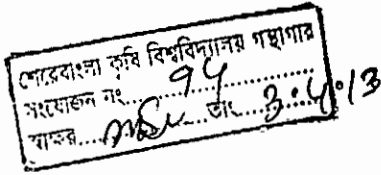 শেরেবাংলা কৃষি বিশ্ববিদ্যালয় গন্থাগার
সংযোজন নং... 94
স্বাক্ষর... তাং 3.4.13